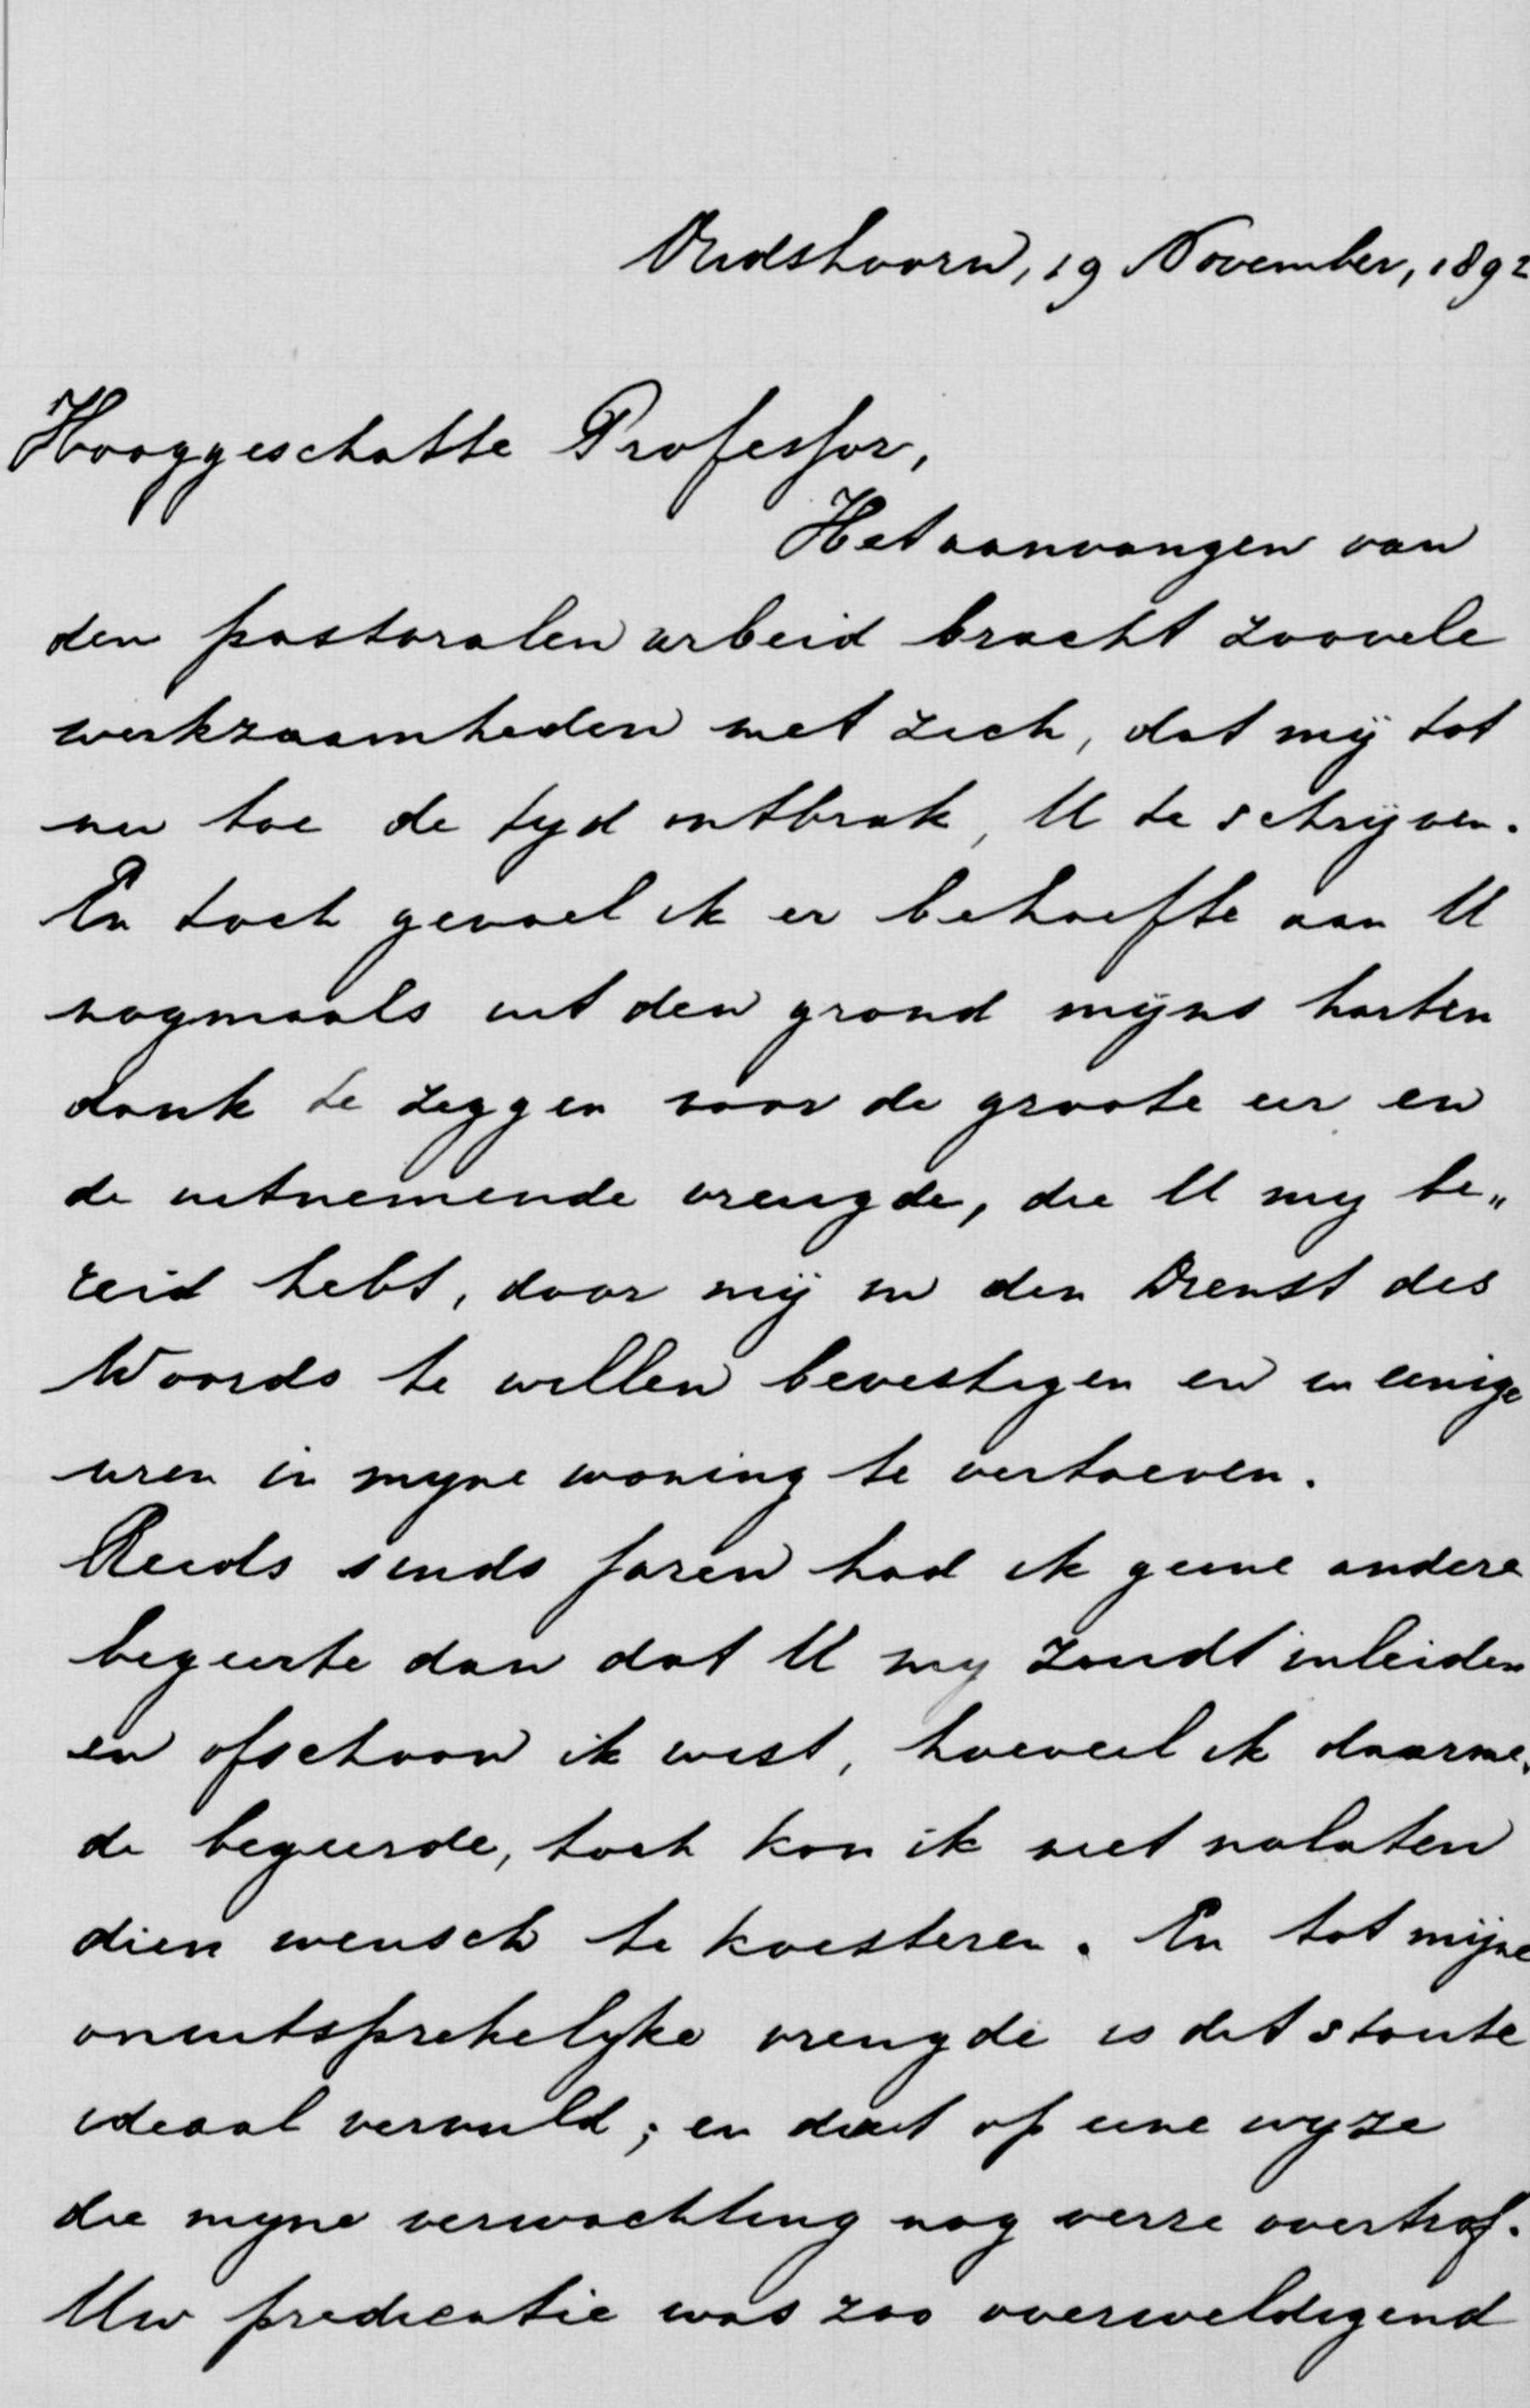 Oudshoorn, 19 November, 1892
Hooggeschatte Professor,
Het aanvangen van
den pastoralen arbeid bracht zoovele
werkzaamheden met zich, dat mij tot
nu toe de tyd ontbrak, U te schrijven.
En toch gevoel ik er behoefte aan U
nogmaals uit den grond mijns harten
dank te zeggen voor de groote eer en
de uitnemende vreugde, die U my be„
reid hebt, door mij in den Dienst des
Woords te willen bevestigen en en eenige
uren in myne woning te vertoeven.
Reeds sinds jaren had ik geene andere
begeerte dan dat U my zoudt inleiden
en ofschoon ik wist, hoeveel ik daarme„
de begeerde, toch kon ik niet nalaten
dien wensch te koesteren. En tot mijne
onuitsprekelyke vreugde is dit stoute
ideaal vervuld; en dat op eene wyze
die myne verwachting nog verre overtrof.
Uw predicatie was zoo overweldigend